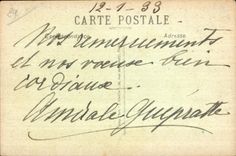 12-1-33
CARTE POSTALE
Correspondance Adresse
Nos remerciements
et nos vœux bien
cordiaux.
Amirale Guépratte